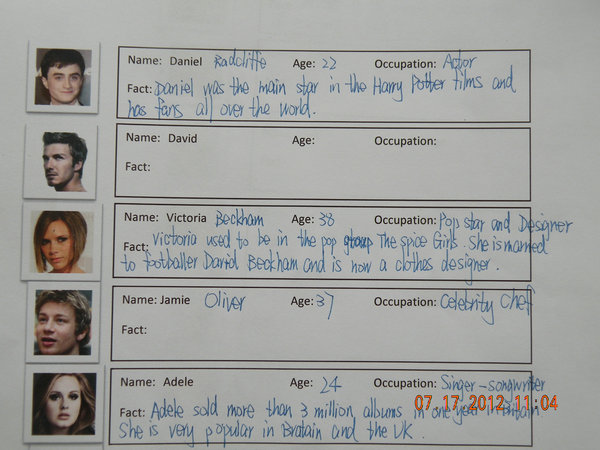 Name: Daniel Radcliffe Age: 22 Occupation: Actor
Fact: Daniel was the main star in the Harry Potter films and
has fans all over the world.
Name: David Age: Occupation:
Fact:
Name: Victoria Beckham Age: 38 Occupation: Pop star and Designer
Fact: Victoria used to be in the pop group The Spice Girls. She is married
to footballer David Beckham and is now a clothes designer.
Name: Jamie Oliver Age: 37 Occupation: Celebrity Chef
Fact:
Name: Adele Age: 24 Occupation: Singer-songwriter
Fact: Adele sold more than 3 million albums in one year in Britain
She is very popular in Bratain and the UK.
07.17.2012 11:04